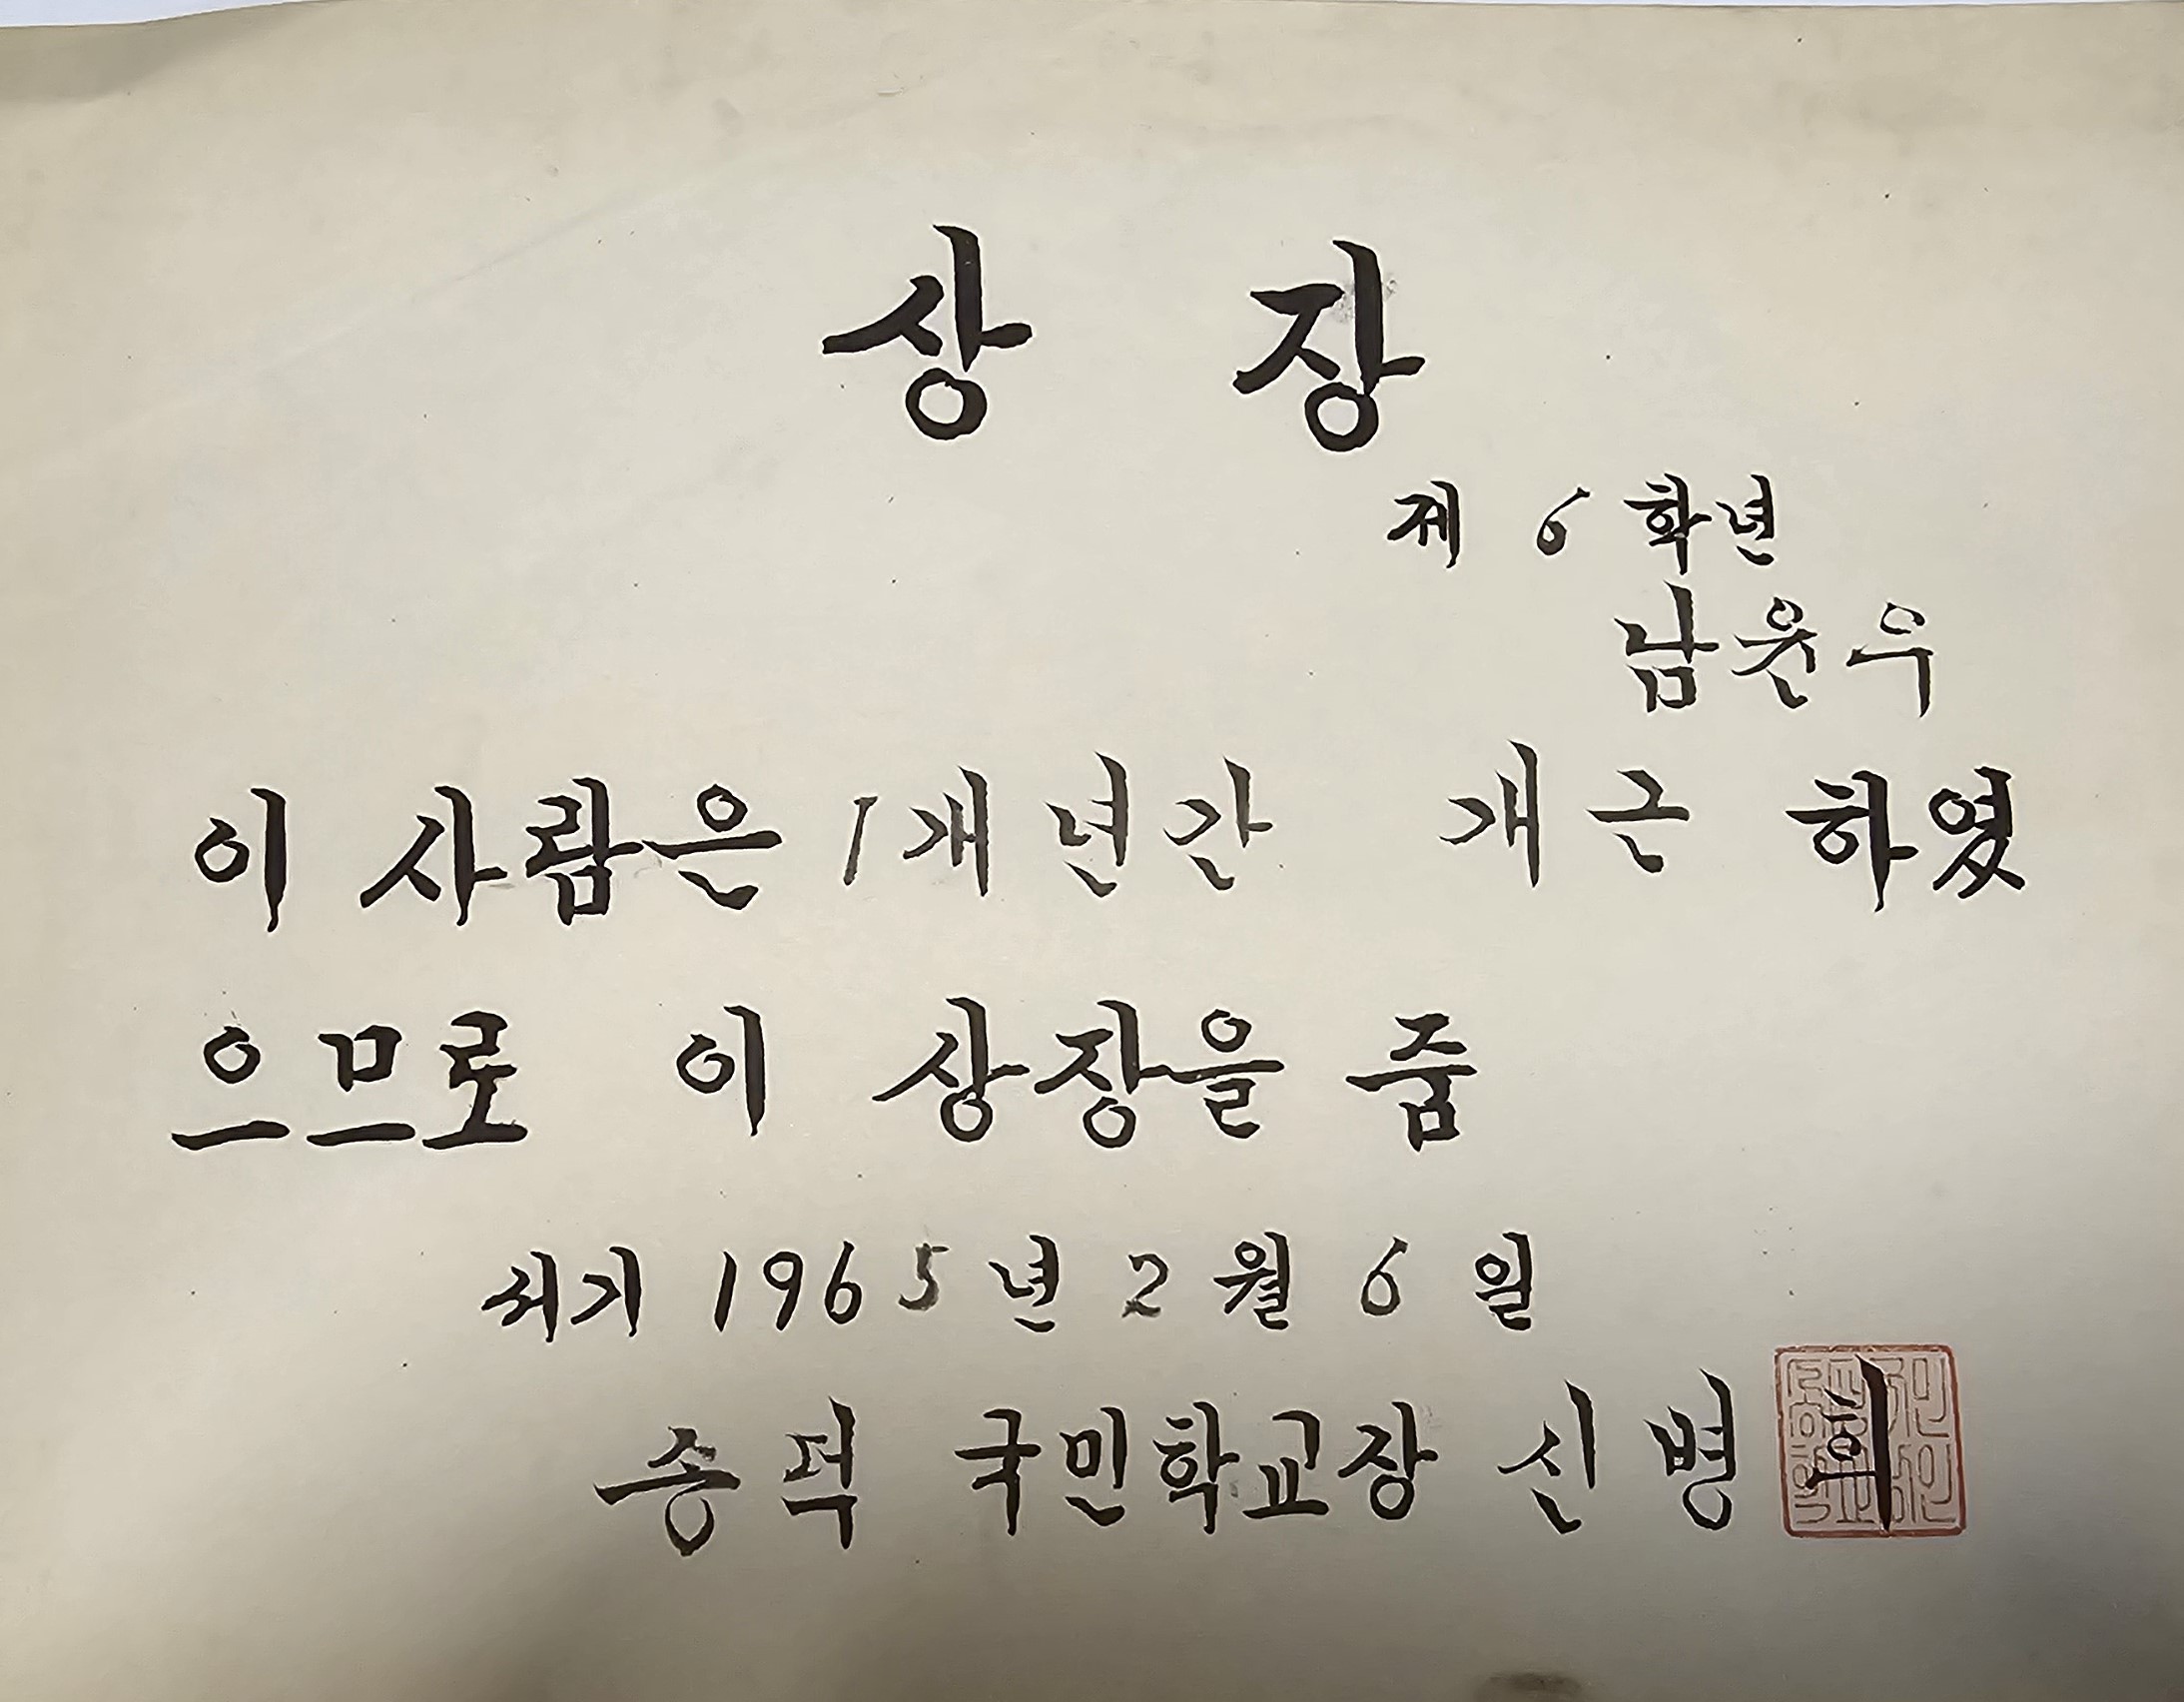 상 장
제 6 학년
남윤우
이 사람은 1개년간 개근 하였
으므로 이 상장을 줌
서기 1965년 2월 6일
송덕 국민학교장 신병희